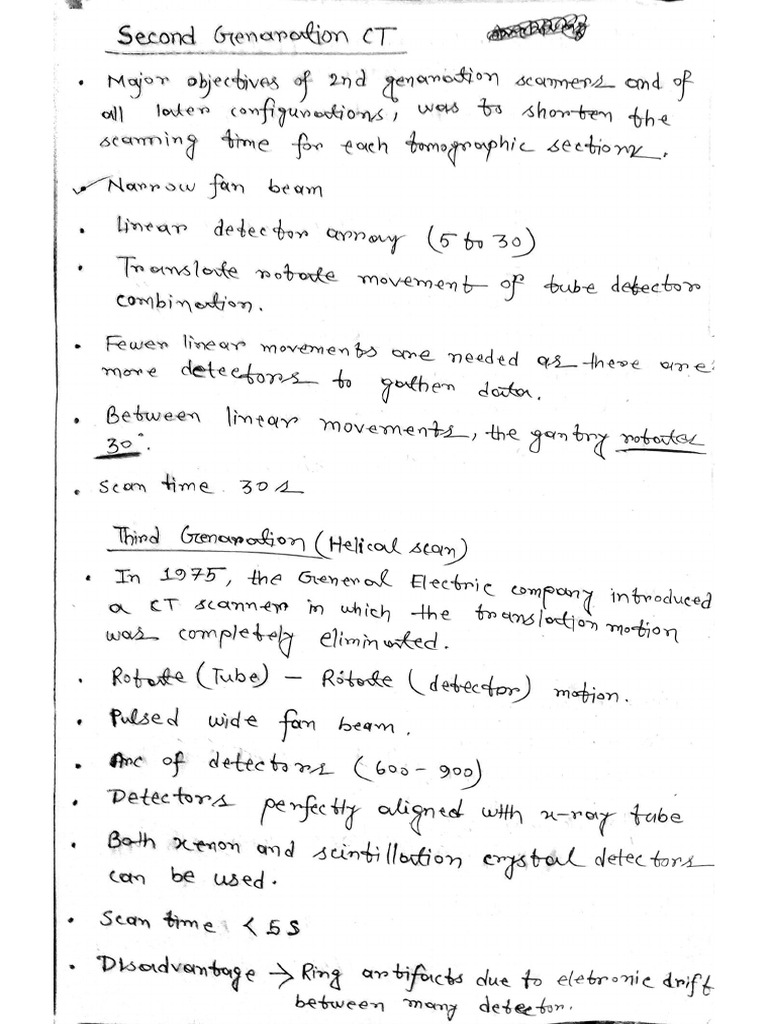 Second Genaration CT
• Major objectives of 2nd genaration scanners and of
all later configurations, was to shorten the
scanning time for each tomographic sections.
✓ Narrow fan beam
• Linear detector array (5 to 30)
• Translate rotate movement of tube detector
combination.
• Fewer linear movements are needed as there are
more detectors to gather data.
• Between linear movements, the gantry rotates
30°.
• Scan time 30s
Third Genaration (Helical scan)
• In 1975, the General Electric company introduced
a CT scanner in which the translation motion
was completely eliminated.
• Rotate (Tube) – Rotate (detector) motion.
• Pulsed wide fan beam.
• Arc of detectors (600 - 900)
• Detectors perfectly aligned with x-ray tube
• Both xenon and scintillation crystal detectors
can be used.
• Scan time < 5s
• Disadvantage → Ring artifacts due to eletronic drift
between many detector.